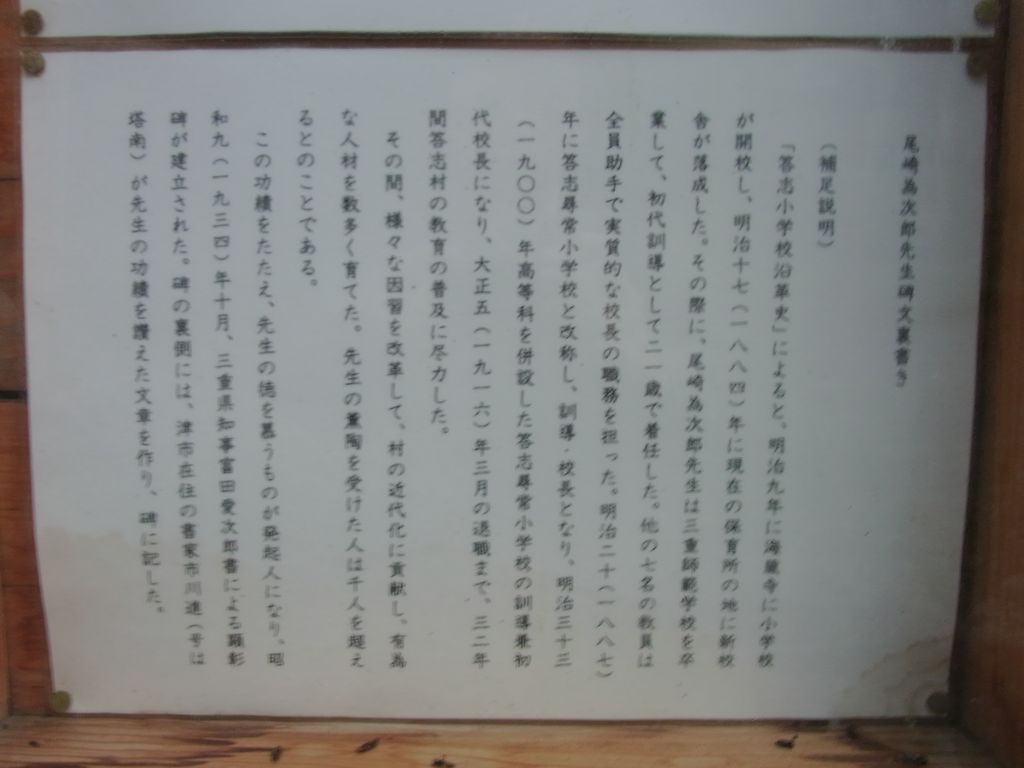 尾崎為次郎先生碑文裏書き
（補足説明）
「答志小学校沿革史」によると、明治九年に海蔵寺に小学校
が開校し、明治十七（一八八四）年に現在の保育所の地に新校
舎が落成した。その際に、尾崎為次郎先生は三重師範学校を卒
業して、初代訓導として二一歳で着任した。他の七名の教員は
全員助手で実質的な校長の職務を担った。明治二十（一八八七）
年に答志尋常小学校と改称し、訓導・校長となり、明治三十三
（一九〇〇）年高等科を併設した答志尋常小学校の訓導兼初
代校長になり、大正五（一九一六）年三月の退職まで、三二年
間答志村の教育の普及に尽力した。
その間、様々な因習を改革して、村の近代化に貢献し、有為
な人材を数多く育てた。先生の薫陶を受けた人は千人を超え
るとのことである。
この功績をたたえ、先生の徳を慕うものが発起人になり、昭
和九（一九三四）年十月、三重県知事富田愛次郎書による顕彰
碑が建立された。碑の裏側には、津市在住の書家市川進（号は
塔南）が先生の功績を讃えた文章を作り、碑に記した。